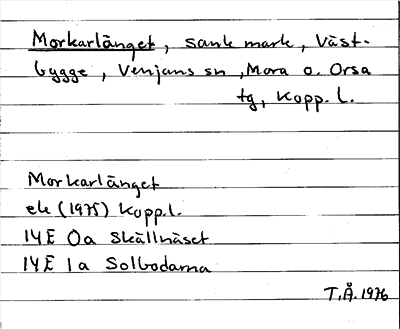 Morkarlänget, sank mark, Väst-
bygge, Venjans sn, Mora o. Orsa
tg, Kopp. l.
Morkarlänget
ek (1975) Kopp.l.
14E 0a Skällnäset
14E 1a Solbodarna
T.Å. 1976